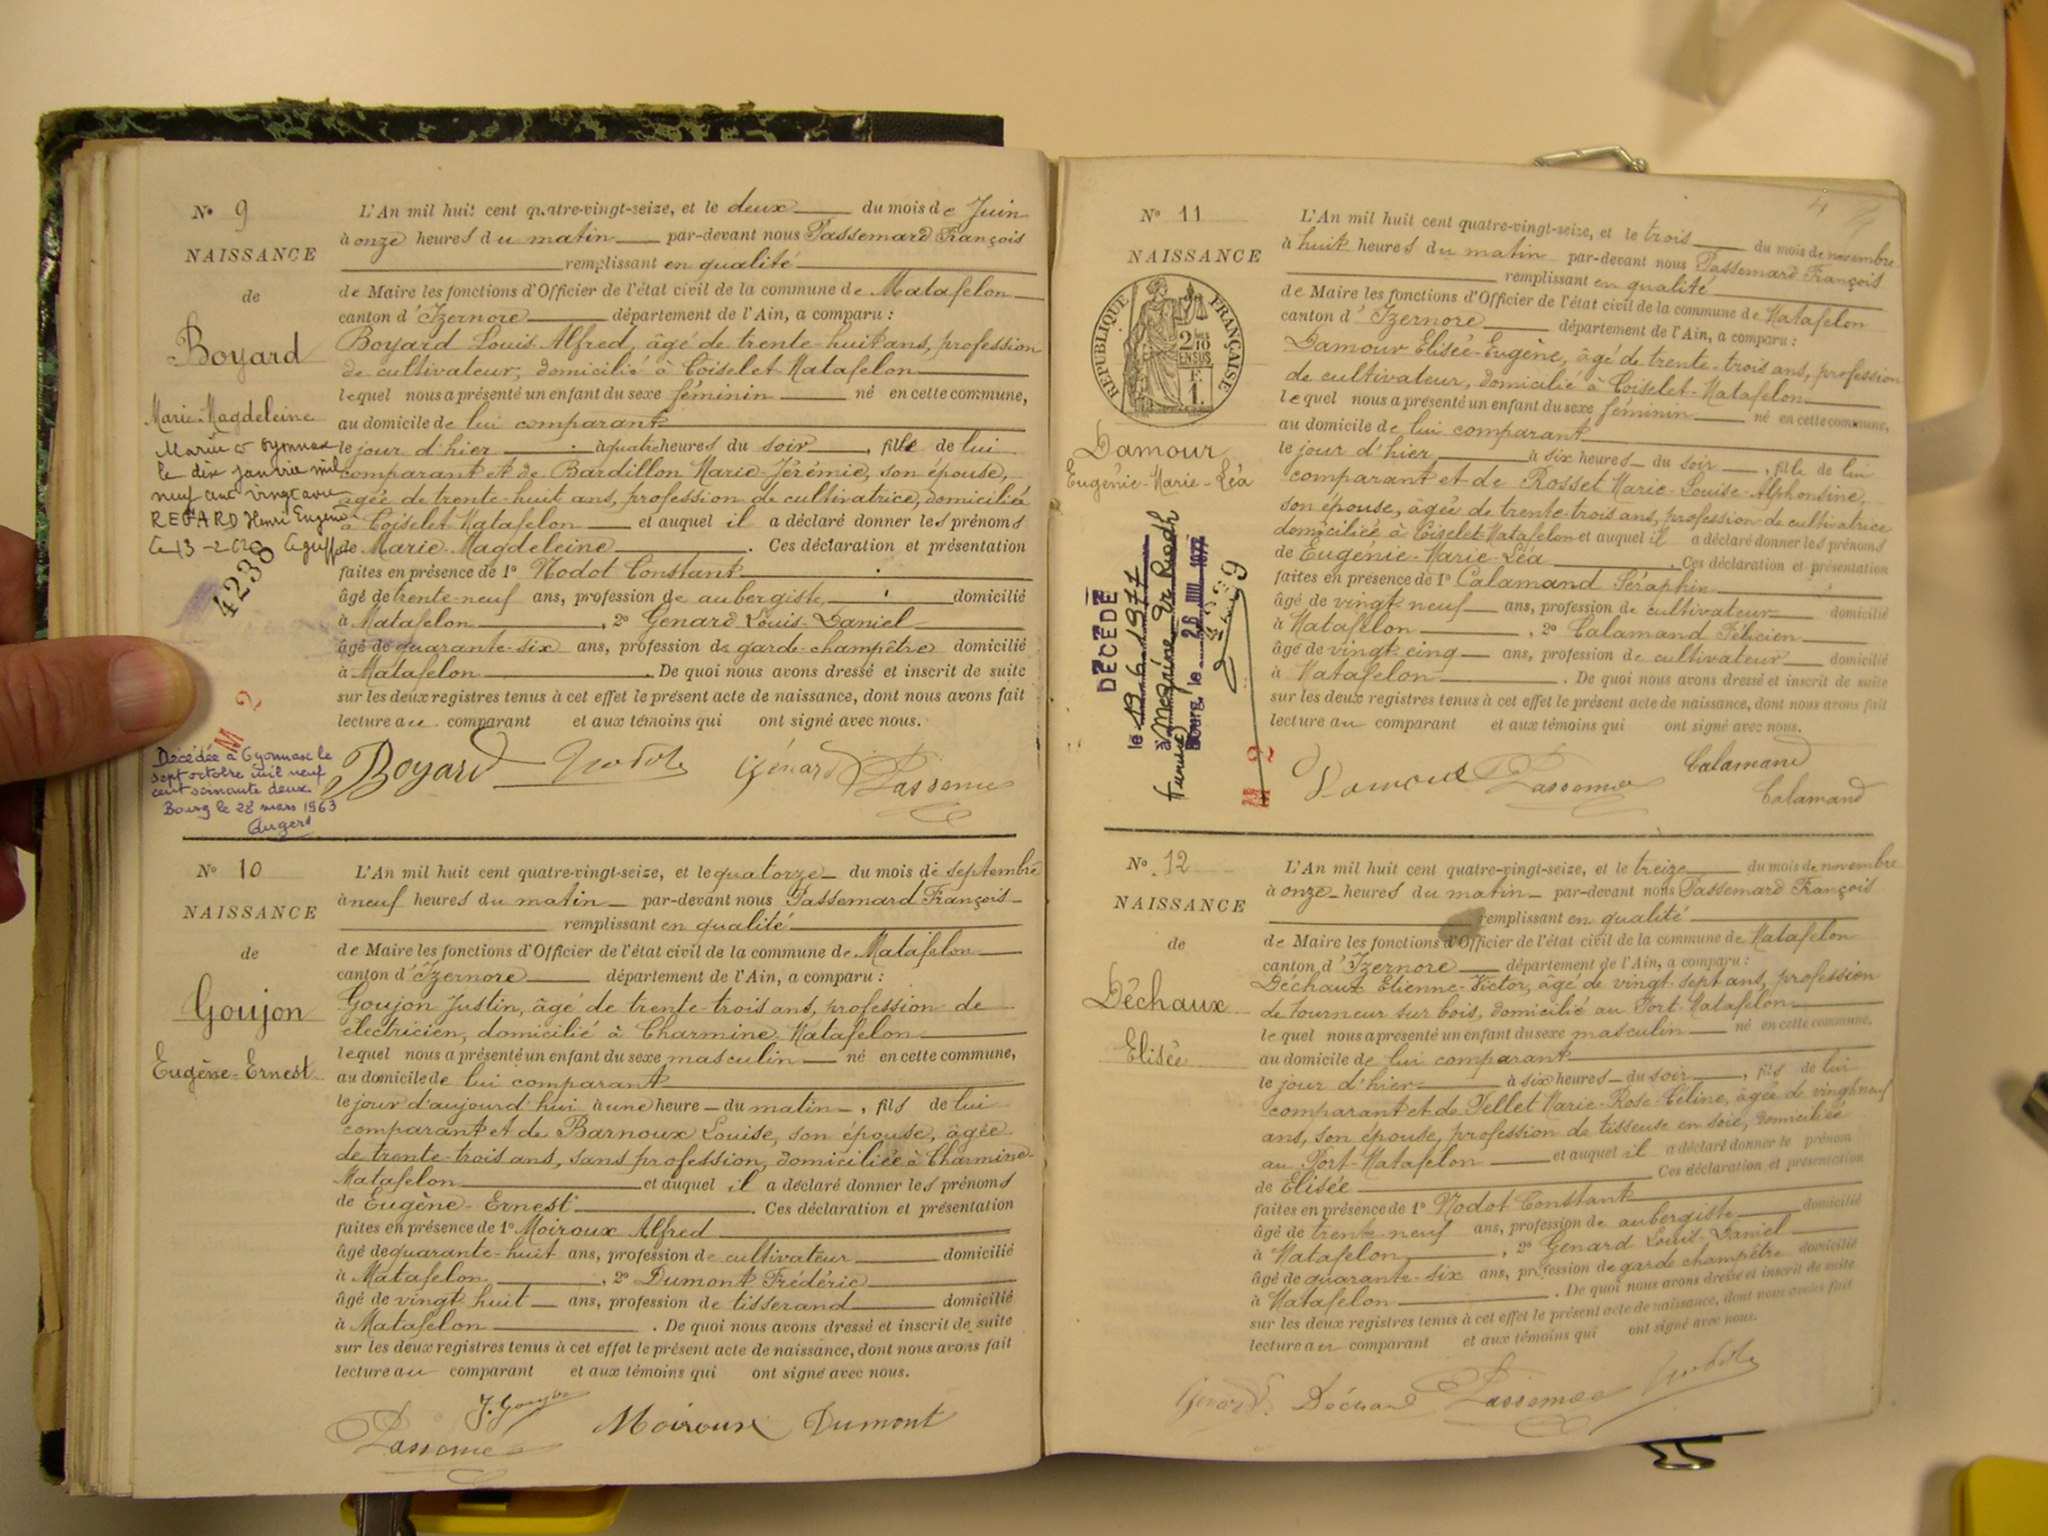 N° 9
NAISSANCE
de
Boyard
Marie-Magdeleine
Mariée à Oyonnax
le dix janvier mil
neuf cent vingt avec
REGARD Henri Eugène
Le 13-2-20 Le greffier
4238
M 2
Décédée à Oyonnax le
sept octobre mil neuf
cent soixante deux
Bourg le 28 mars 1963
L'An mil huit cent quatre-vingt-seize, et le deux du mois de Juin
à onze heures du matin par-devant nous Passemard François
remplissant en qualité
de Maire les fonctions d'Officier de l'état civil de la commune de Matafelon
canton d'Izernore département de l'Ain, a comparu :
Boyard Louis Alfred, âgé de trente-huit ans, profession
de cultivateur, domicilié à Coiselet Matafelon
lequel nous a présenté un enfant du sexe féminin né en cette commune,
au domicile de lui comparant
le jour d'hier à quatre heures du soir, fille de lui
comparant et de Bardillon Marie-Jérémie, son épouse,
âgée de trente-huit ans, profession de cultivatrice, domiciliée
à Coiselet Matafelon et auquel il a déclaré donner les prénoms
de Marie-Magdeleine. Ces déclaration et présentation
faites en présence de 1° Nodot Constant
âgé de trente-neuf ans, profession de aubergiste domicilié
à Matafelon, 2° Genard Louis-Daniel
âgé de quarante-six ans, profession de garde-champêtre domicilié
à Matafelon. De quoi nous avons dressé et inscrit de suite
sur les deux registres tenus à cet effet le présent acte de naissance, dont nous avons fait
lecture au comparant et aux témoins qui ont signé avec nous.
Boyard Nodot Génard Passemard
N° 10
NAISSANCE
de
Goujon
Eugène-Ernest
L'An mil huit cent quatre-vingt-seize, et le quatorze du mois de septembre
à neuf heures du matin par-devant nous Passemard François
remplissant en qualité
de Maire les fonctions d'Officier de l'état civil de la commune de Matafelon
canton d'Izernore département de l'Ain, a comparu :
Goujon Justin, âgé de trente-trois ans, profession de
électricien, domicilié à Charmine-Matafelon
lequel nous a présenté un enfant du sexe masculin né en cette commune,
au domicile de lui comparant
le jour d'aujourd'hui à une heure du matin, fils de lui
comparant et de Barnoux Louise, son épouse, âgée
de trente-trois ans, sans profession, domiciliée à Charmine-
Matafelon et auquel il a déclaré donner les prénoms
de Eugène-Ernest. Ces déclaration et présentation
faites en présence de 1° Moiroux Alfred
âgé de quarante-huit ans, profession de cultivateur domicilié
à Matafelon, 2° Dumont Frédéric
âgé de vingt huit ans, profession de tisserand domicilié
à Matafelon. De quoi nous avons dressé et inscrit de suite
sur les deux registres tenus à cet effet le présent acte de naissance, dont nous avons fait
lecture au comparant et aux témoins qui ont signé avec nous.
J. Goujon
Passemard Moiroux Dumont
4
N° 11
NAISSANCE
RÉPUBLIQUE FRANÇAISE
2/10 EN SUS
F.
1.
Damour
Eugénie-Marie-Léa
DÉCÉDÉ
le 13.6.1977
à
Bourg, le 28 1977
M 2
L'An mil huit cent quatre-vingt-seize, et le trois du mois de novembre
à huit heures du matin par-devant nous Passemard François
remplissant en qualité
de Maire les fonctions d'Officier de l'état civil de la commune de Matafelon
canton d'Izernore département de l'Ain, a comparu :
Damour Elisée-Eugène, âgé de trente-trois ans, profession
de cultivateur, domicilié à Coiselet-Matafelon
lequel nous a présenté un enfant du sexe féminin né en cette commune,
au domicile de lui comparant
le jour d'hier à six heures du soir, fille de lui
comparant et de Rosset Marie-Louise-Alphonsine,
son épouse, âgée de trente-trois ans, profession de cultivatrice
domiciliée à Coiselet-Matafelon et auquel il a déclaré donner les prénoms
de Eugénie-Marie-Léa. Ces déclaration et présentation
faites en présence de 1° Calamand Séraphin
âgé de vingt neuf ans, profession de cultivateur domicilié
à Matafelon, 2° Calamand Félicien
âgé de vingt cinq ans, profession de cultivateur domicilié
à Matafelon. De quoi nous avons dressé et inscrit de suite
sur les deux registres tenus à cet effet le présent acte de naissance, dont nous avons fait
lecture au comparant et aux témoins qui ont signé avec nous.
Damour Passemard Calamand
Calamand
N° 12
NAISSANCE
de
Déchaux
Elisée
L'An mil huit cent quatre-vingt-seize, et le treize du mois de novembre
à onze heures du matin par-devant nous Passemard François
remplissant en qualité
de Maire les fonctions d'Officier de l'état civil de la commune de Matafelon
canton d'Izernore département de l'Ain, a comparu :
Déchaux Etienne-Victor, âgé de vingt-sept ans, profession
de tourneur sur bois, domicilié au Port-Matafelon
lequel nous a présenté un enfant du sexe masculin né en cette commune,
au domicile de lui comparant
le jour d'hier à six heures du soir, fils de lui
comparant et de Tellet Marie-Rose-Celine, âgée de vingt neuf
ans, son épouse, profession de tisseuse en soie, domiciliée
au Port-Matafelon et auquel il a déclaré donner le prénom
de Elisée Ces déclaration et présentation
faites en présence de 1° Nodot Constant
âgé de trente neuf ans, profession de aubergiste domicilié
à Matafelon, 2° Genard Louis-Daniel
âgé de quarante-six ans, profession de garde champêtre domicilié
à Matafelon. De quoi nous avons dressé et inscrit de suite
sur les deux registres tenus à cet effet le présent acte de naissance, dont nous avons fait
lecture au comparant et aux témoins qui ont signé avec nous.
Génard Déchaux Passemard Nodot